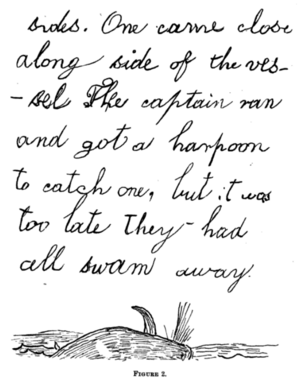 sides. One came close
along side of the ves-
-sel The captain ran
and got a harpoon
to catch one, but it was
too late They had
all swam away.
FIGURE 2.